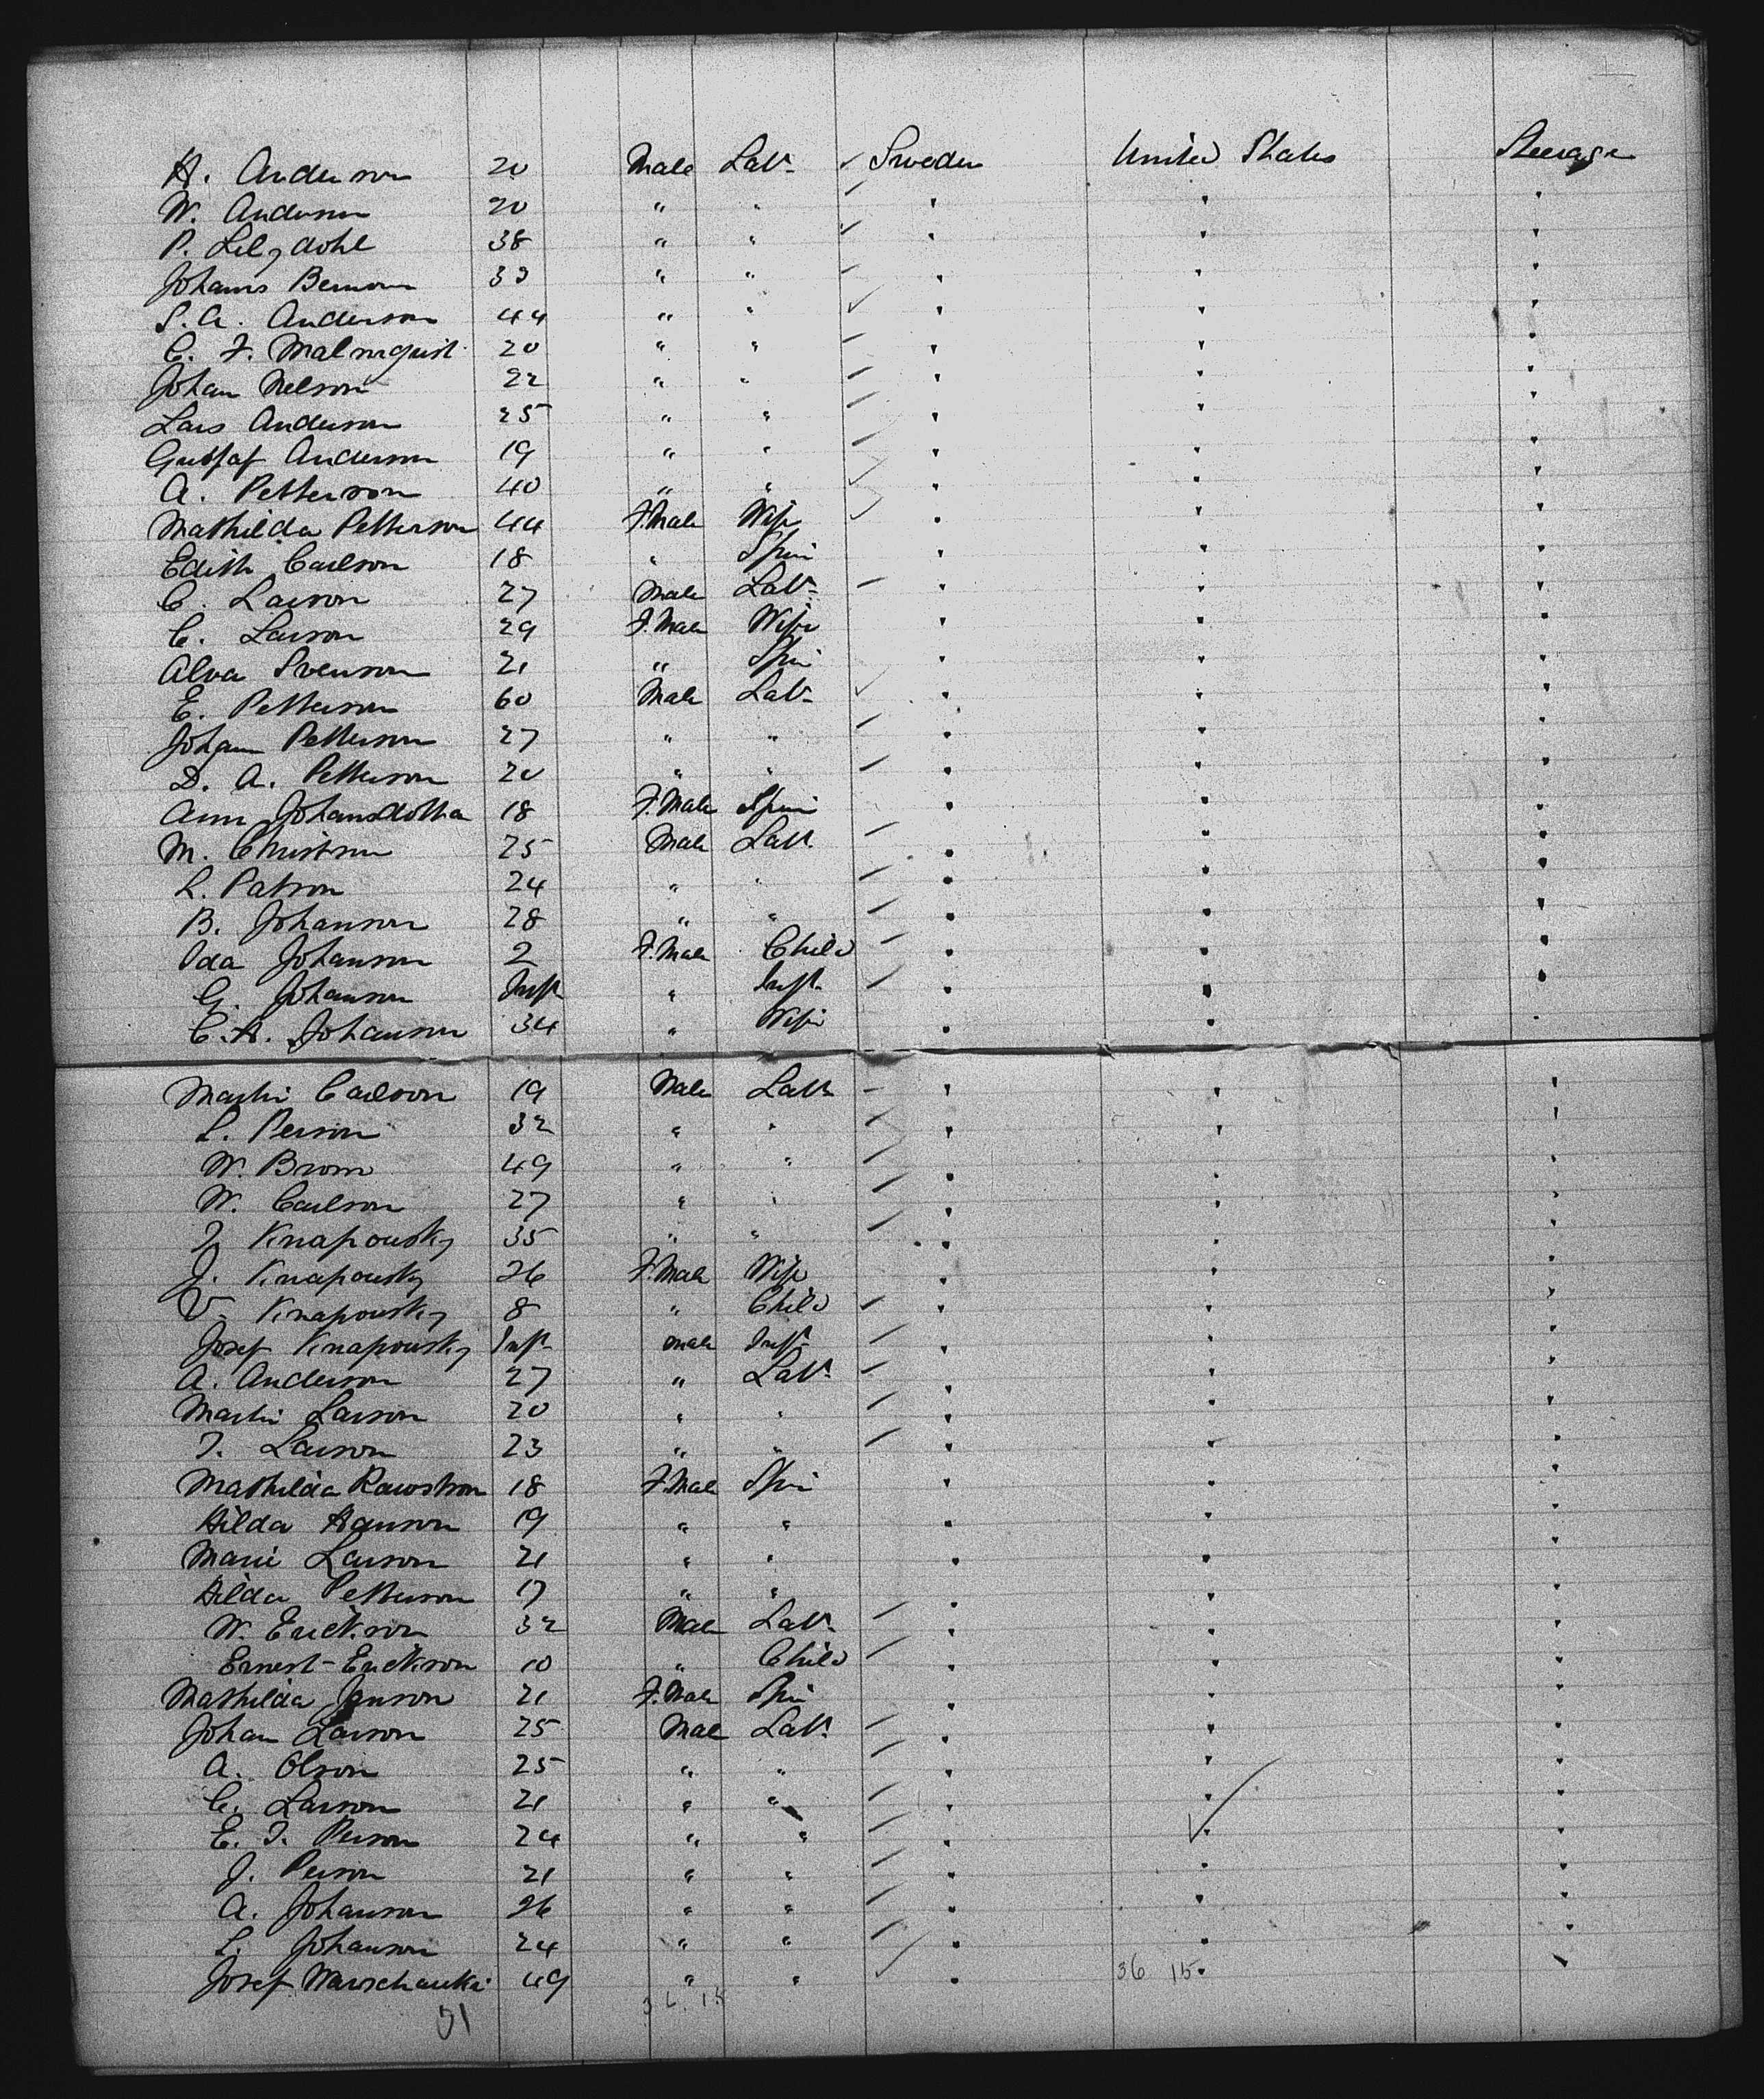 H. Anderson 20 Male Labr ✓ Sweden United States Steerage
W. Anderson 20 " " " " "
P. Liljdohl 38 " " " " "
Johans Benson 33 " " " " "
S. A. Anderson 44 " " " " "
C. F. Malmquist 20 " " " " "
Johan Nelson 22 " " " " "
Lars Anderson 25 " " " " "
Gustaf Anderson 19 " " " " "
A. Petterson 40 " " " " "
Mathilda Petterson 44 F.Male Wife " " "
Edith Carlson 18 " Spin " " "
C. Larson 27 Male Labr " " "
C. Larson 29 F.Male Wife " " "
Alva Svenson 21 " Spin " " "
E. Petterson 60 Male Labr " " "
Johan Petterson 27 " " " " "
D. A. Petterson 20 " " " " "
Ann Johansdotta 18 F.Male Spin " " "
M. Christson 25 Male Labr " " "
L. Patson 24 " " " " "
B. Johanson 28 " " " " "
Ida Johanson 2 F.Male Child " " "
G. Johanson Inft " Inft " " "
C. H. Johanson 34 " Wife " " "
Martin Carlson 19 Male Labr " " "
L. Person 32 " " " " "
W. Brom 49 " " " " "
W. Carlson 27 " " " " "
J Knapousky 35 " " " " "
J. Knapousky 26 F.Male Wife " " "
V. Knapousky 8 " Child " " "
Josef Knapousky Inft Male Inft " " "
A. Anderson 27 " Labr " " "
Martin Larson 20 " " " " "
J. Larson 23 " " " " "
Mathilda Rawstrom 18 F.Male Spin " " "
Hilda Hanson 19 " " " " "
Marie Larson 21 " " " " "
Hilda Petterson 17 " " " " "
W. Erickson 32 Male Labr " " "
Ernest Erickson 10 " Child " " "
Mathilda Janson 21 F.Male Spin " " "
Johan Larson 25 Male Labr " " "
A. Olson 25 " " " " "
C. Larson 21 " " " " "
E. J. Person 24 " " " " "
J. Person 21 " " " " "
A. Johanson 26 " " " " "
L. Johanson 24 " " " " "
Josef Warschauki 49 " " " 36 15 " "
51 36.15